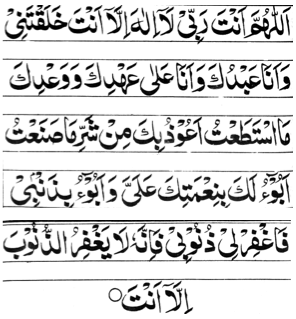 اَللّٰهُمَّ اَنْتَ رَبِّیْ لَآ اِلٰهَ اِلَّآ اَنْتَ خَلَقْتَنِیْ
وَاَنَا عَبْدُكَ وَاَنَا عَلٰی عَهْدِكَ وَوَعْدِكَ
مَا اسْتَطَعْتُ اَعُوْذُبِكَ مِنْ شَرِّ مَا صَنَعْتُ
اَبُوْٓءُ لَكَ بِنِعْمَتِكَ عَلَیَّ وَاَبُوْٓءُ بِذَنْۢبِیْ
فَاغْفِرْلِیْ ذُنُوْبِیْ فَاِنَّهٗ لَا یَغْفِرُ الذُّنُوْبَ
اِلَّآ اَنْتَ○